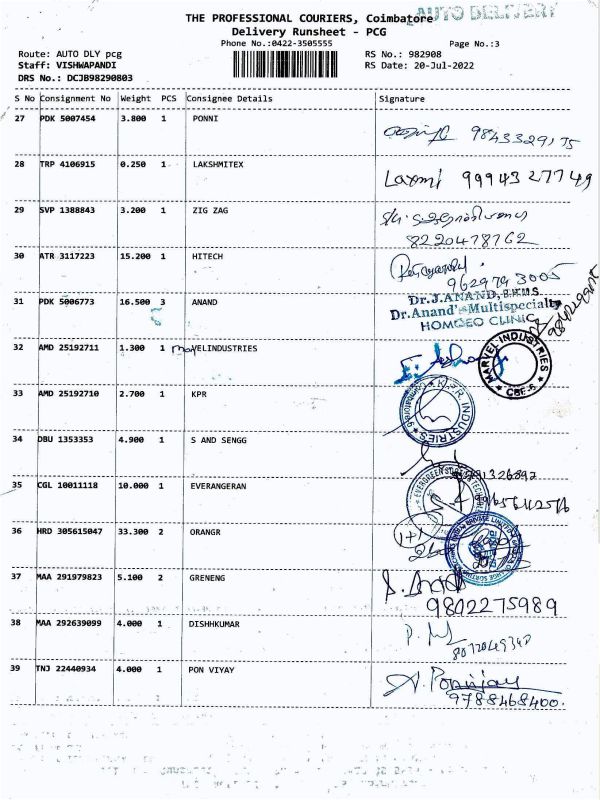 AUTO DELIVERY
THE PROFESSIONAL COURIERS, Coimbatore
Delivery Runsheet - PCG
Phone No.:0422-3505555
Page No.:3
Route: AUTO DLY pcg
RS No.: 982908
Staff: VISHWAPANDI
RS Date: 20-Jul-2022
DRS No.: DCJB98290803
S No Consignment No Weight PCS Consignee Details Signature
27 PDK 5007454 3.800 1 PONNI
9843329175
28 TRP 4106915 0.250 1 LAKSHMITEX
Laxmi 9994327749
29 SVP 1388843 3.200 1 ZIG ZAG
8220478762
30 ATR 3117223 15.200 1 HITECH
9629793005
31 PDK 5006773 16.500 3 ANAND
Dr.J.ANAND, B.H.M.S
Dr.Anand's Multispecialty
HOMOEO CLINIC
32 AMD 25192711 1.300 1 VELINDUSTRIES
MARVEL INDUSTRIES
CBE-6
33 AMD 25192710 2.700 1 KPR
KPR INDUSTRIES
34 DBU 1353353 4.900 1 S AND SENGG
35 CGL 10011118 10.000 1 EVERANGERAN
36 HRD 305615047 33.300 2 ORANGR
1+1
37 MAA 291979823 5.100 2 GRENENG
9802275989
38 MAA 292639099 4.000 1 DISHHKUMAR
39 TNJ 22440934 4.000 1 PON VIYAY
A. Ponvijay
9788468400.